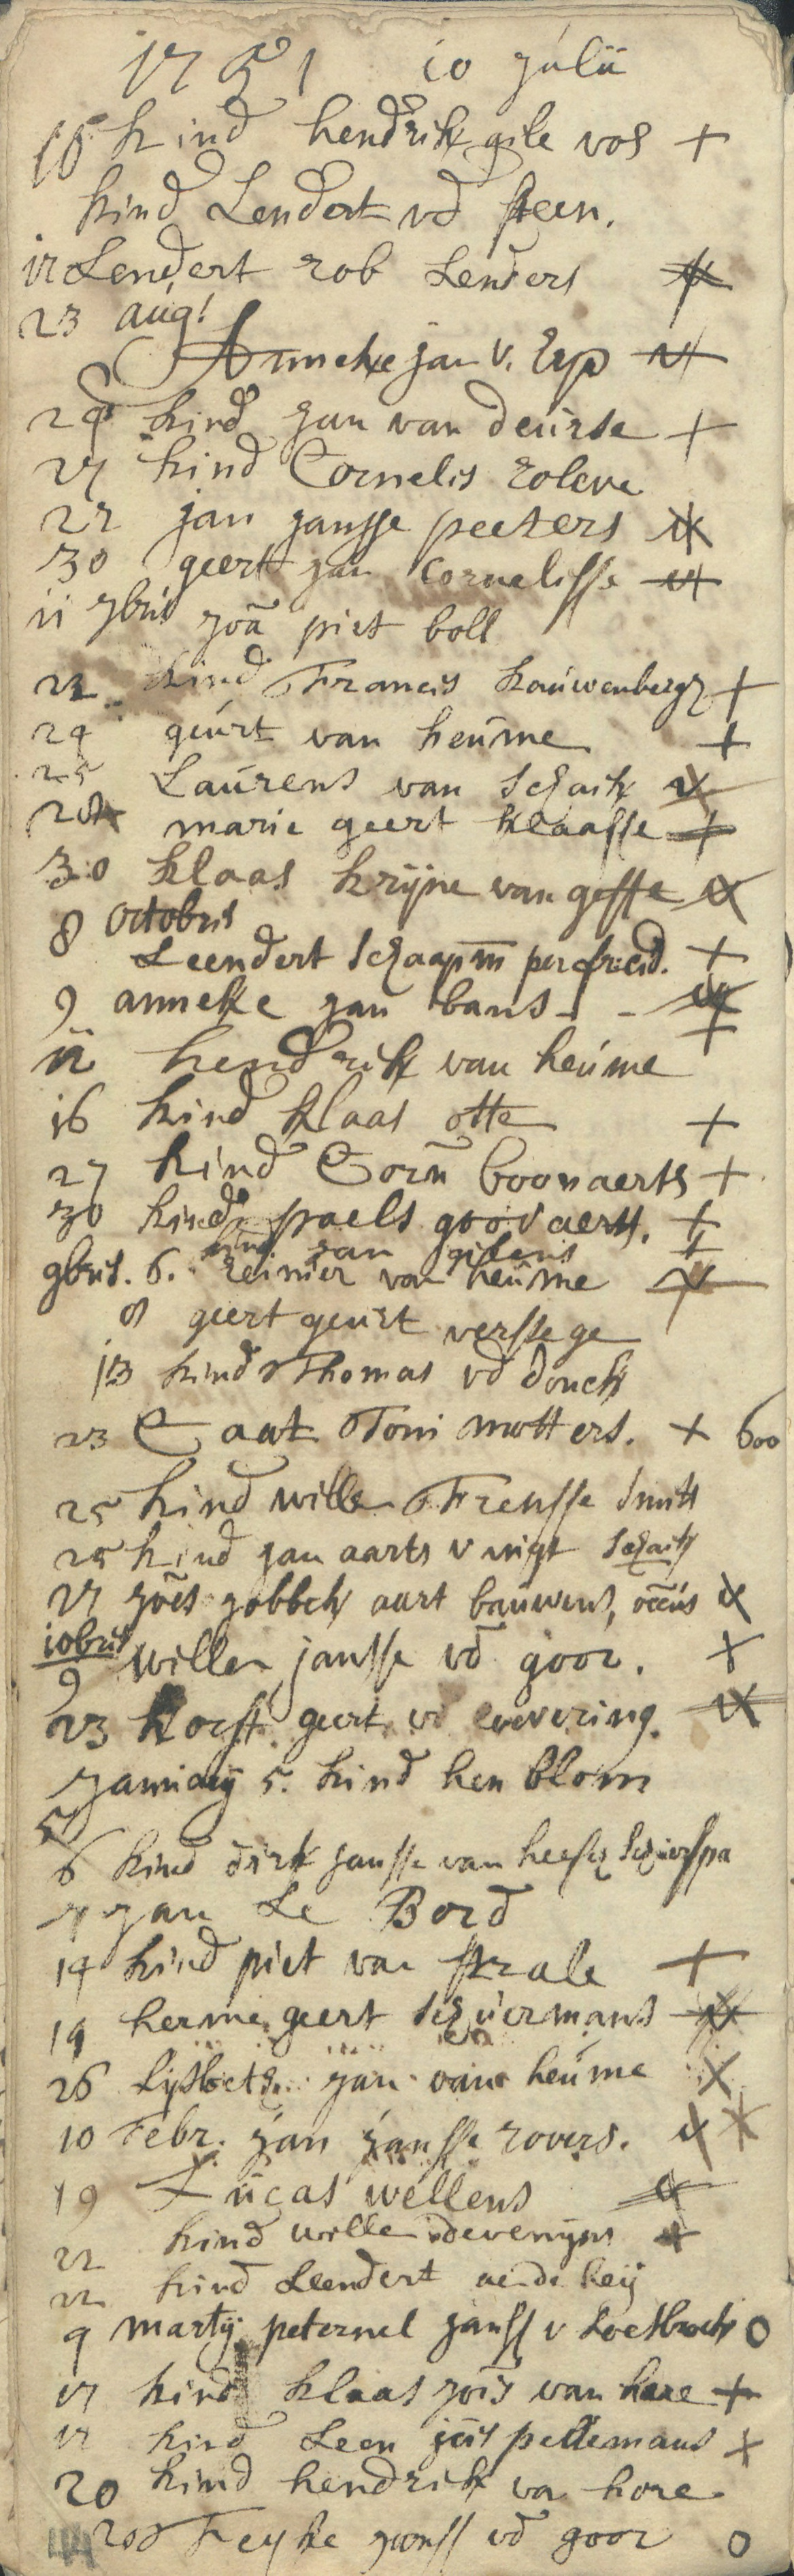 1751 10 julii
15 kind hendrik gile vos +
kind Lendert vd steen.
12 Lendert rob Lenders
23 aug!
Anneke jan v. Erp
24 kind jan van deurse +
27 kind Cornelis roleve
27 jan jansse peeters
30 geert jan Cornelisse
11 7bris joã piet boll
22 kind Francis kouwenbergh +
24 geurt van heume +
25 Laurens van Schaik
28 marie geert klaasse +
30 klaas krijne van geffe
8 octobris
Leendert Schaapm̄ +
9 anneke jan bans - -
12 hendrik van heume +
16 kind klaas otte +
27 kind Corñ boovaerts +
30 kind paels goovaerts. +
kind jan gilens +
9bris. 6. reinier van heume
8 geert geurt verstege
13 kind Thomas vd donck
23 Caat Toni motters. + 600
25 kind wille Frensse smits
25 kind jan aarts v Schaik
27 jões jobbek aart bauwens,
10bris
9 willem jansse vd goor. +
23 geert vd levering.
januarij 5. kind hen blom
5
6 kind dirk jansse van heesch
7 jan Le Bord
14 kind piet van strale +
19 herme geert Schuermans
26 Lijsbeth jan van heume X
10 Febr. jan jansse rovers.
19 Lucas wellens
22 kind wille devenijns +
22 kind Leendert
9 martij peternel janss v Loesbroek O
17 kind klaas jois van hare +
17 kind Leen pettemans +
20 kind hendrik va hore
20 Feyke janss vd goor O
44